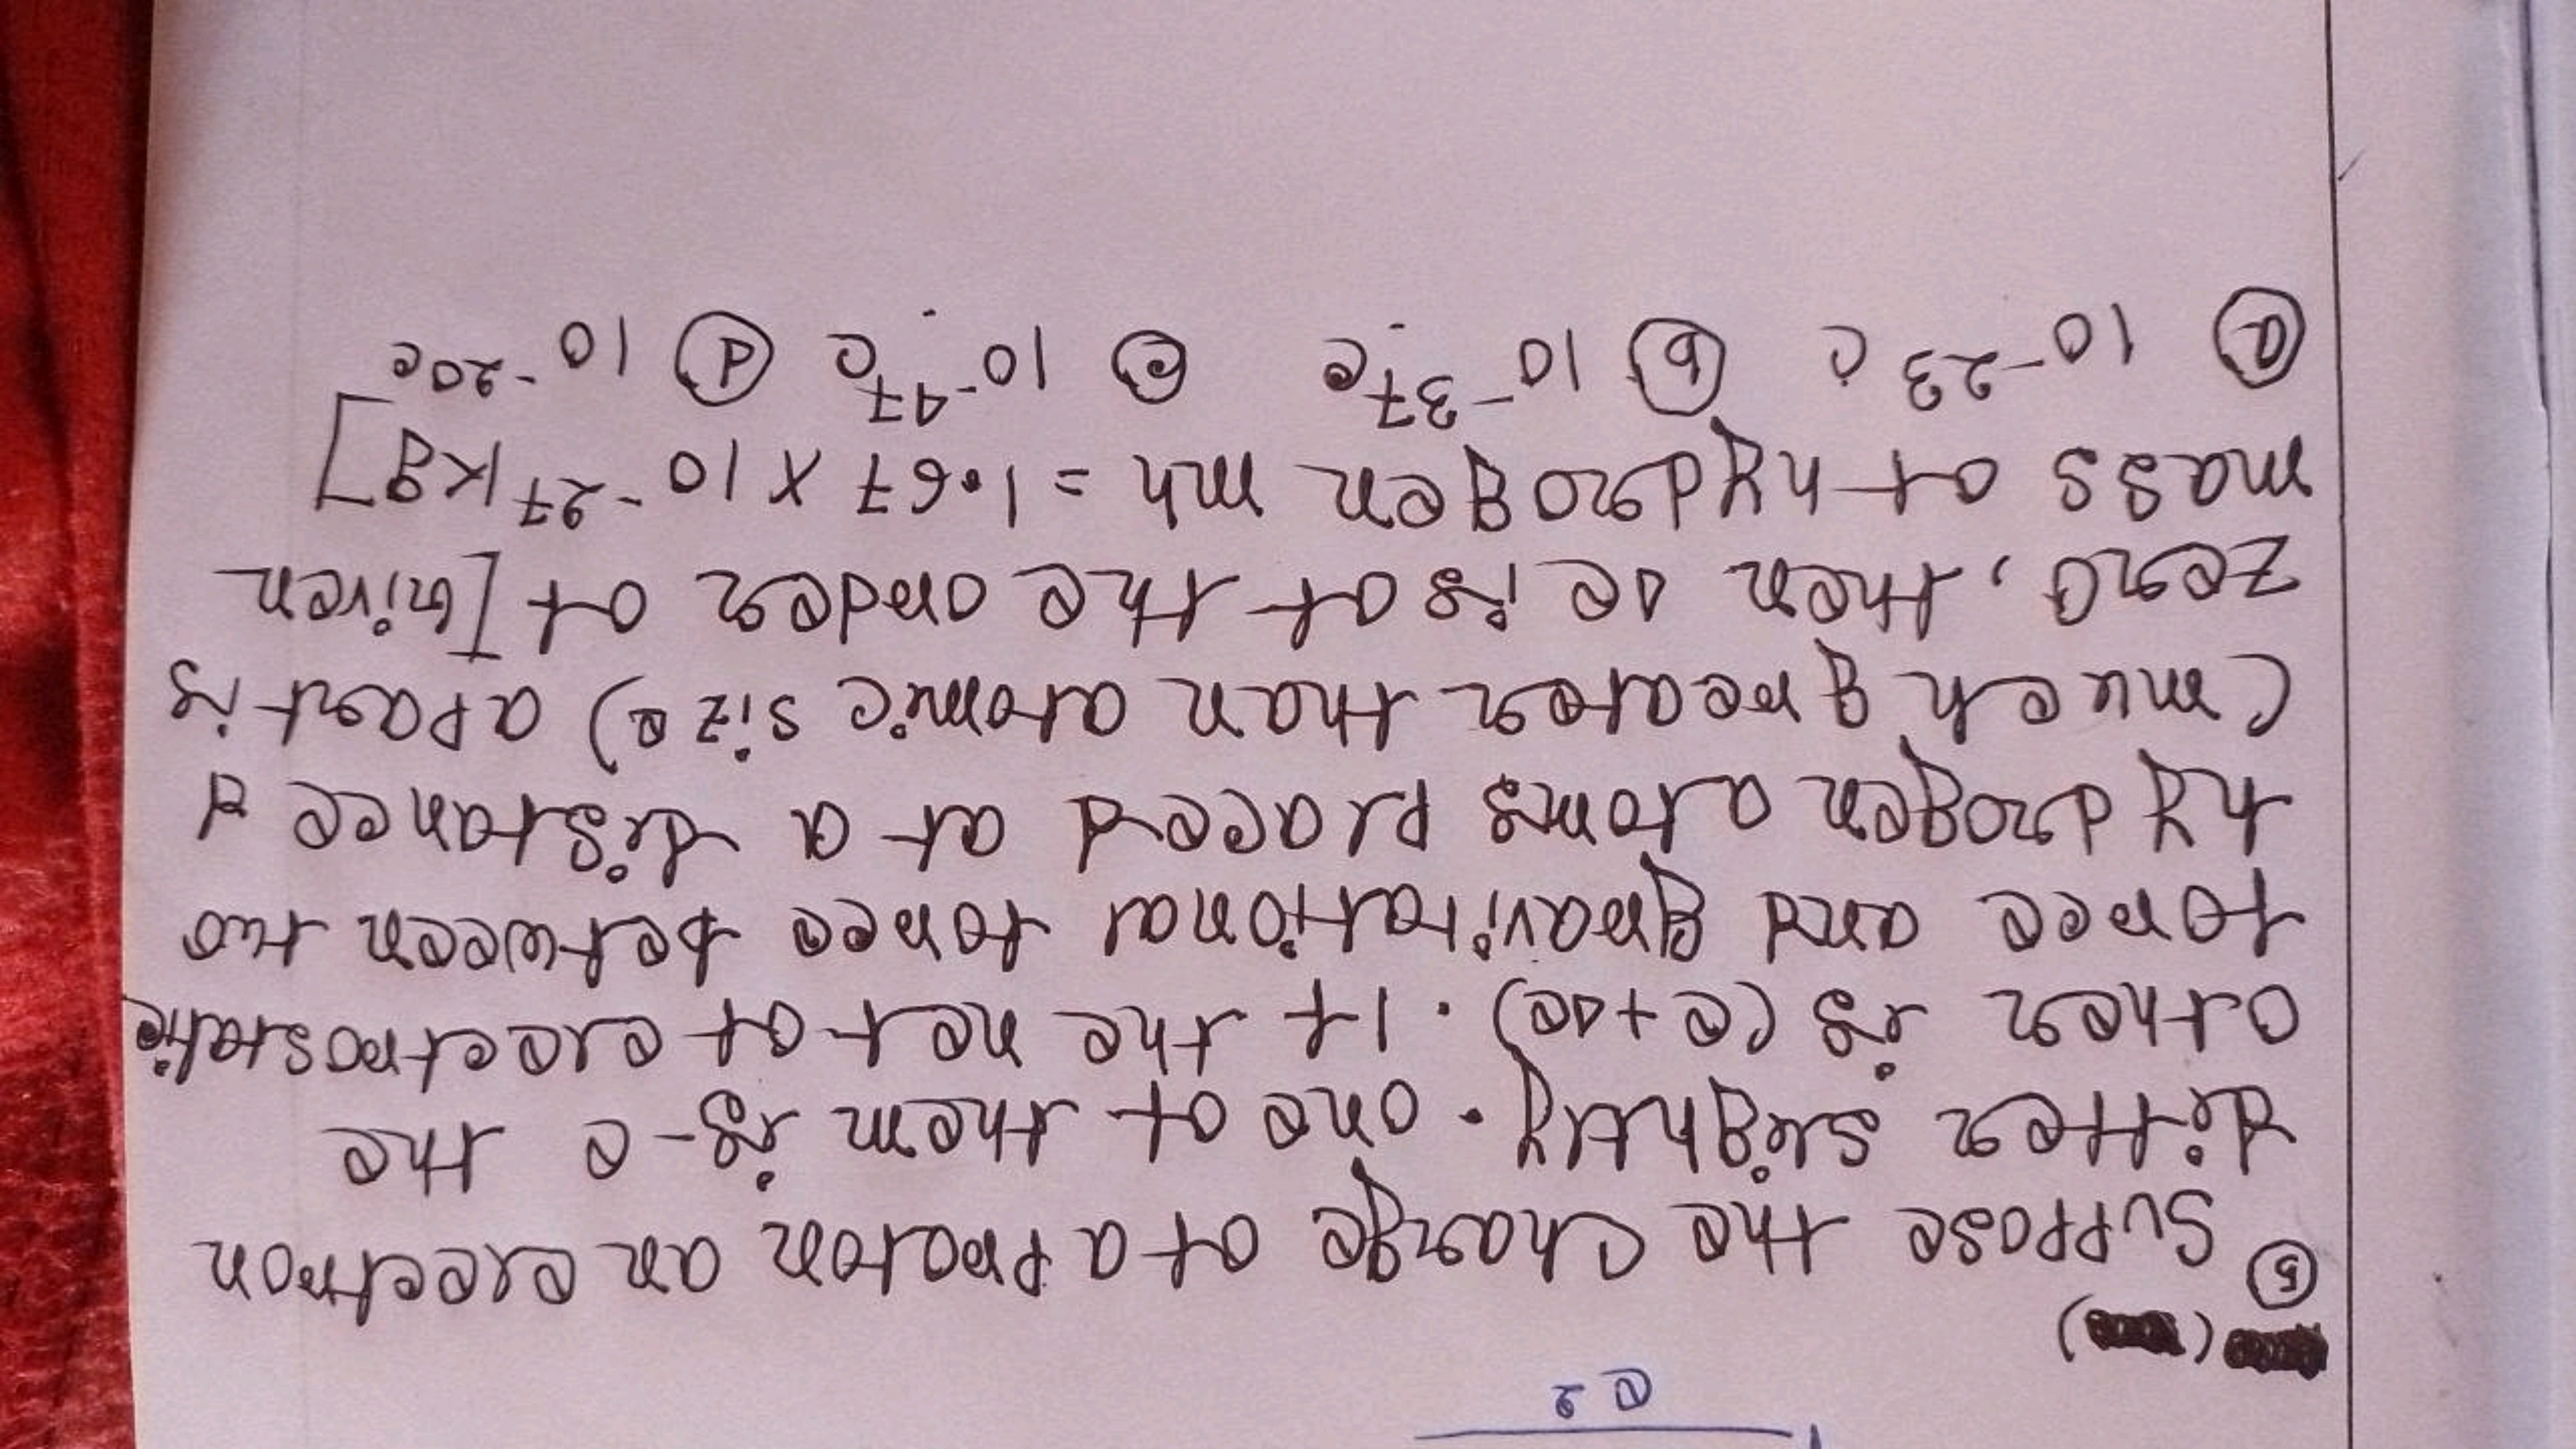 e2
⑤ Suppose the charge of a proton an electron
differ slightly. one of them is -e the
other is (e+Δe). If the net of electrostatic
force and gravitational force between two
hydrogen atoms placed at a distance d
(much greater than atomic size) apart is
zero, then Δe is of the order of [Given
mass of hydrogen mh = 1.67 × 10^-27 kg]
ⓐ 10^-23 c ⓑ 10^-37 c ⓒ 10^-47 c ⓓ 10^-20 c